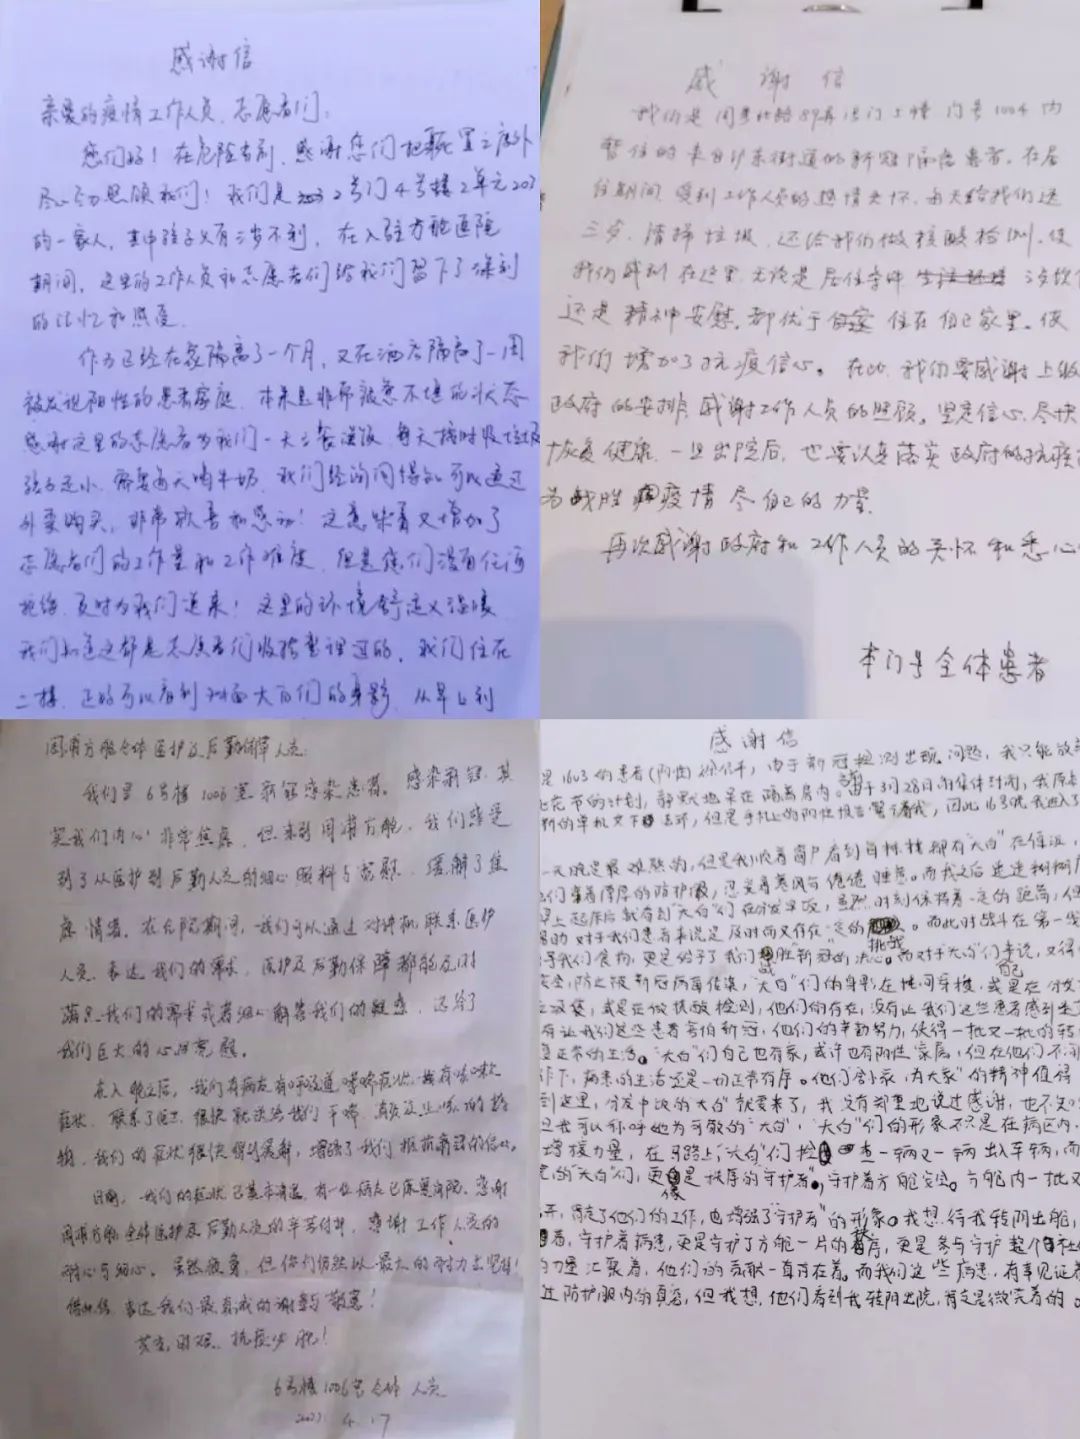 感谢信
亲爱的疫情工作人员、志愿者们:
您们好!在危险告别、感谢您们把
尽心尽力照顾我们!我们是2号门4号楼2单元203
的一家人,其中孩子又有三岁不到,在入驻方舱医院
期间,这里的工作人员和志愿者们给我们留下了深刻
的记忆和照顾。
作为已经在家隔离了一个月,又在酒店隔离了一周
被发现阳性的患者家庭,本来是非常疲惫不堪的状态
感谢这里的志愿者为我们一天三餐送饭,每天按时收垃圾
孩子还小,需要每天喝牛奶,我们经询问得知可以通过
外卖购买,非常欣喜和感动!这意味着又增加了
志愿者们的工作量和工作难度,但是您们没有任何
拒绝,及时为我们送来!这里的环境舒适又温暖
我们知道这都是志愿者们收拾整理过的,我们住在
二楼,正好可以看到对面大白们的身影,从早上到
感谢信
我们是周李北路89弄 门5幢 门号1004内
暂住的来自沪东街道的新冠肺癌患者,在居
住期间受到工作人员的热情关怀,每天给我们送
三岁,清扫垃圾,还给我们做核酸检测,使
我们感到在这里无论是居住条件
还是精神安慰,都优于住在自己家里。使
我们增加了抗疫信心。在此,我们要感谢上级
政府的安排,感谢工作人员的照顾。坚定信心,尽快
恢复健康,一旦出院后,也要认真落实政府的抗疫
为战胜疫情尽自己的力量
再次感谢政府和工作人员的关怀和悉心
本门号全体患者
周浦方舱全体医护及后勤保障人员:
我们是6号楼1006室新冠感染患者。感染新冠,其
实我们内心非常焦虑,但来到周浦方舱,我们感受
到了从医护到后勤人员的细心照料与宽慰,缓解了焦
虑情绪。在住院期间,我们可以通过对讲机联系医护
人员,表达我们的需求,医护及后勤保障都能及时
满足我们的需求或者细心解答我们的疑惑,还给了
我们巨大的心理宽慰。
在入舱之后,我们有病友有呼吸道哮喘症状,我有咳嗽
症状,联系了医生,很快就送给我们干咳、消炎及止咳的药
物,我们的症状很快得到缓解,增强了我们抵抗病毒的信心。
目前,我们的症状已基本消退,有一位病友已康复出院。感谢
周浦方舱全体医护及后勤人员的辛苦付出,感谢工作人员的
耐心与细心。虽然疲惫,但你们仍然以最大的努力去坚持!
借此信,表达我们最真诚的谢意与敬意!
英雄,刚强,抗疫必胜!
6号楼1006室全体人员
4.17
感谢信
是1603的患者(阿因)徐,由于新冠检测出现问题,我只能放弃
花节的计划,静默地呆在隔离房内。由于3月28日的集体封闭,我原本
但是手机上的阳性报告警示着我,因此16号晚我进入了
一天晚是最难熬的,但是我顺着窗户看到每栋楼都有"大白"在值班,
他们穿着厚厚的防护服,忍受着寒风与倦倦睡意。而我之后迷迷糊糊
早上一起床后就看到"大白"们在分发早饭,虽然时刻保持着一定的距离,但
帮助对于我们患者来说是及时而又存在一定的挑战。而此时战斗在第一线
予我们食物,更是给予了我们战胜新冠的决心。而对于大白们自己来说,又得
安全,防止被新冠病毒传染,"大白"们的身影在楼间穿梭,或是在分发
垃圾袋,或是在做核酸检测,他们的存在,没有让我们这些患者感到
有让我们这些患者害怕新冠,他们的辛勤努力,使得一批又一批的转
正常的生活。"大白"们自己也有家,或许也有阳性家属,但在他们不
作下,病患的生活还是一切正常有序。他们"舍小家,为大家"的精神值得
到这里,分发中饭的"大白"就要来了,我没有郑重地说过感谢,也不知
但我可以称呼她为可敬的"大白","大白"们的形象不只是在病区内,
增援力量,在马路上"大白"们检查一辆又一辆出入车辆,而
定的"大白"们,更像是秩序的守护者,守护着方舱安定。方舱内一批又
肯定了他们的工作,也增强了"守护者"的形象。我想,待我转阴出舱,
着,守护着病患,更是守护了方舱一片的秩序,更是参与守护整个社
的力量汇聚着,他们的贡献一直存在着。而我们这些病患,有幸见证着
过防护服内的真容,但我想,他们看到我转阴出院,肯定是微笑着的。